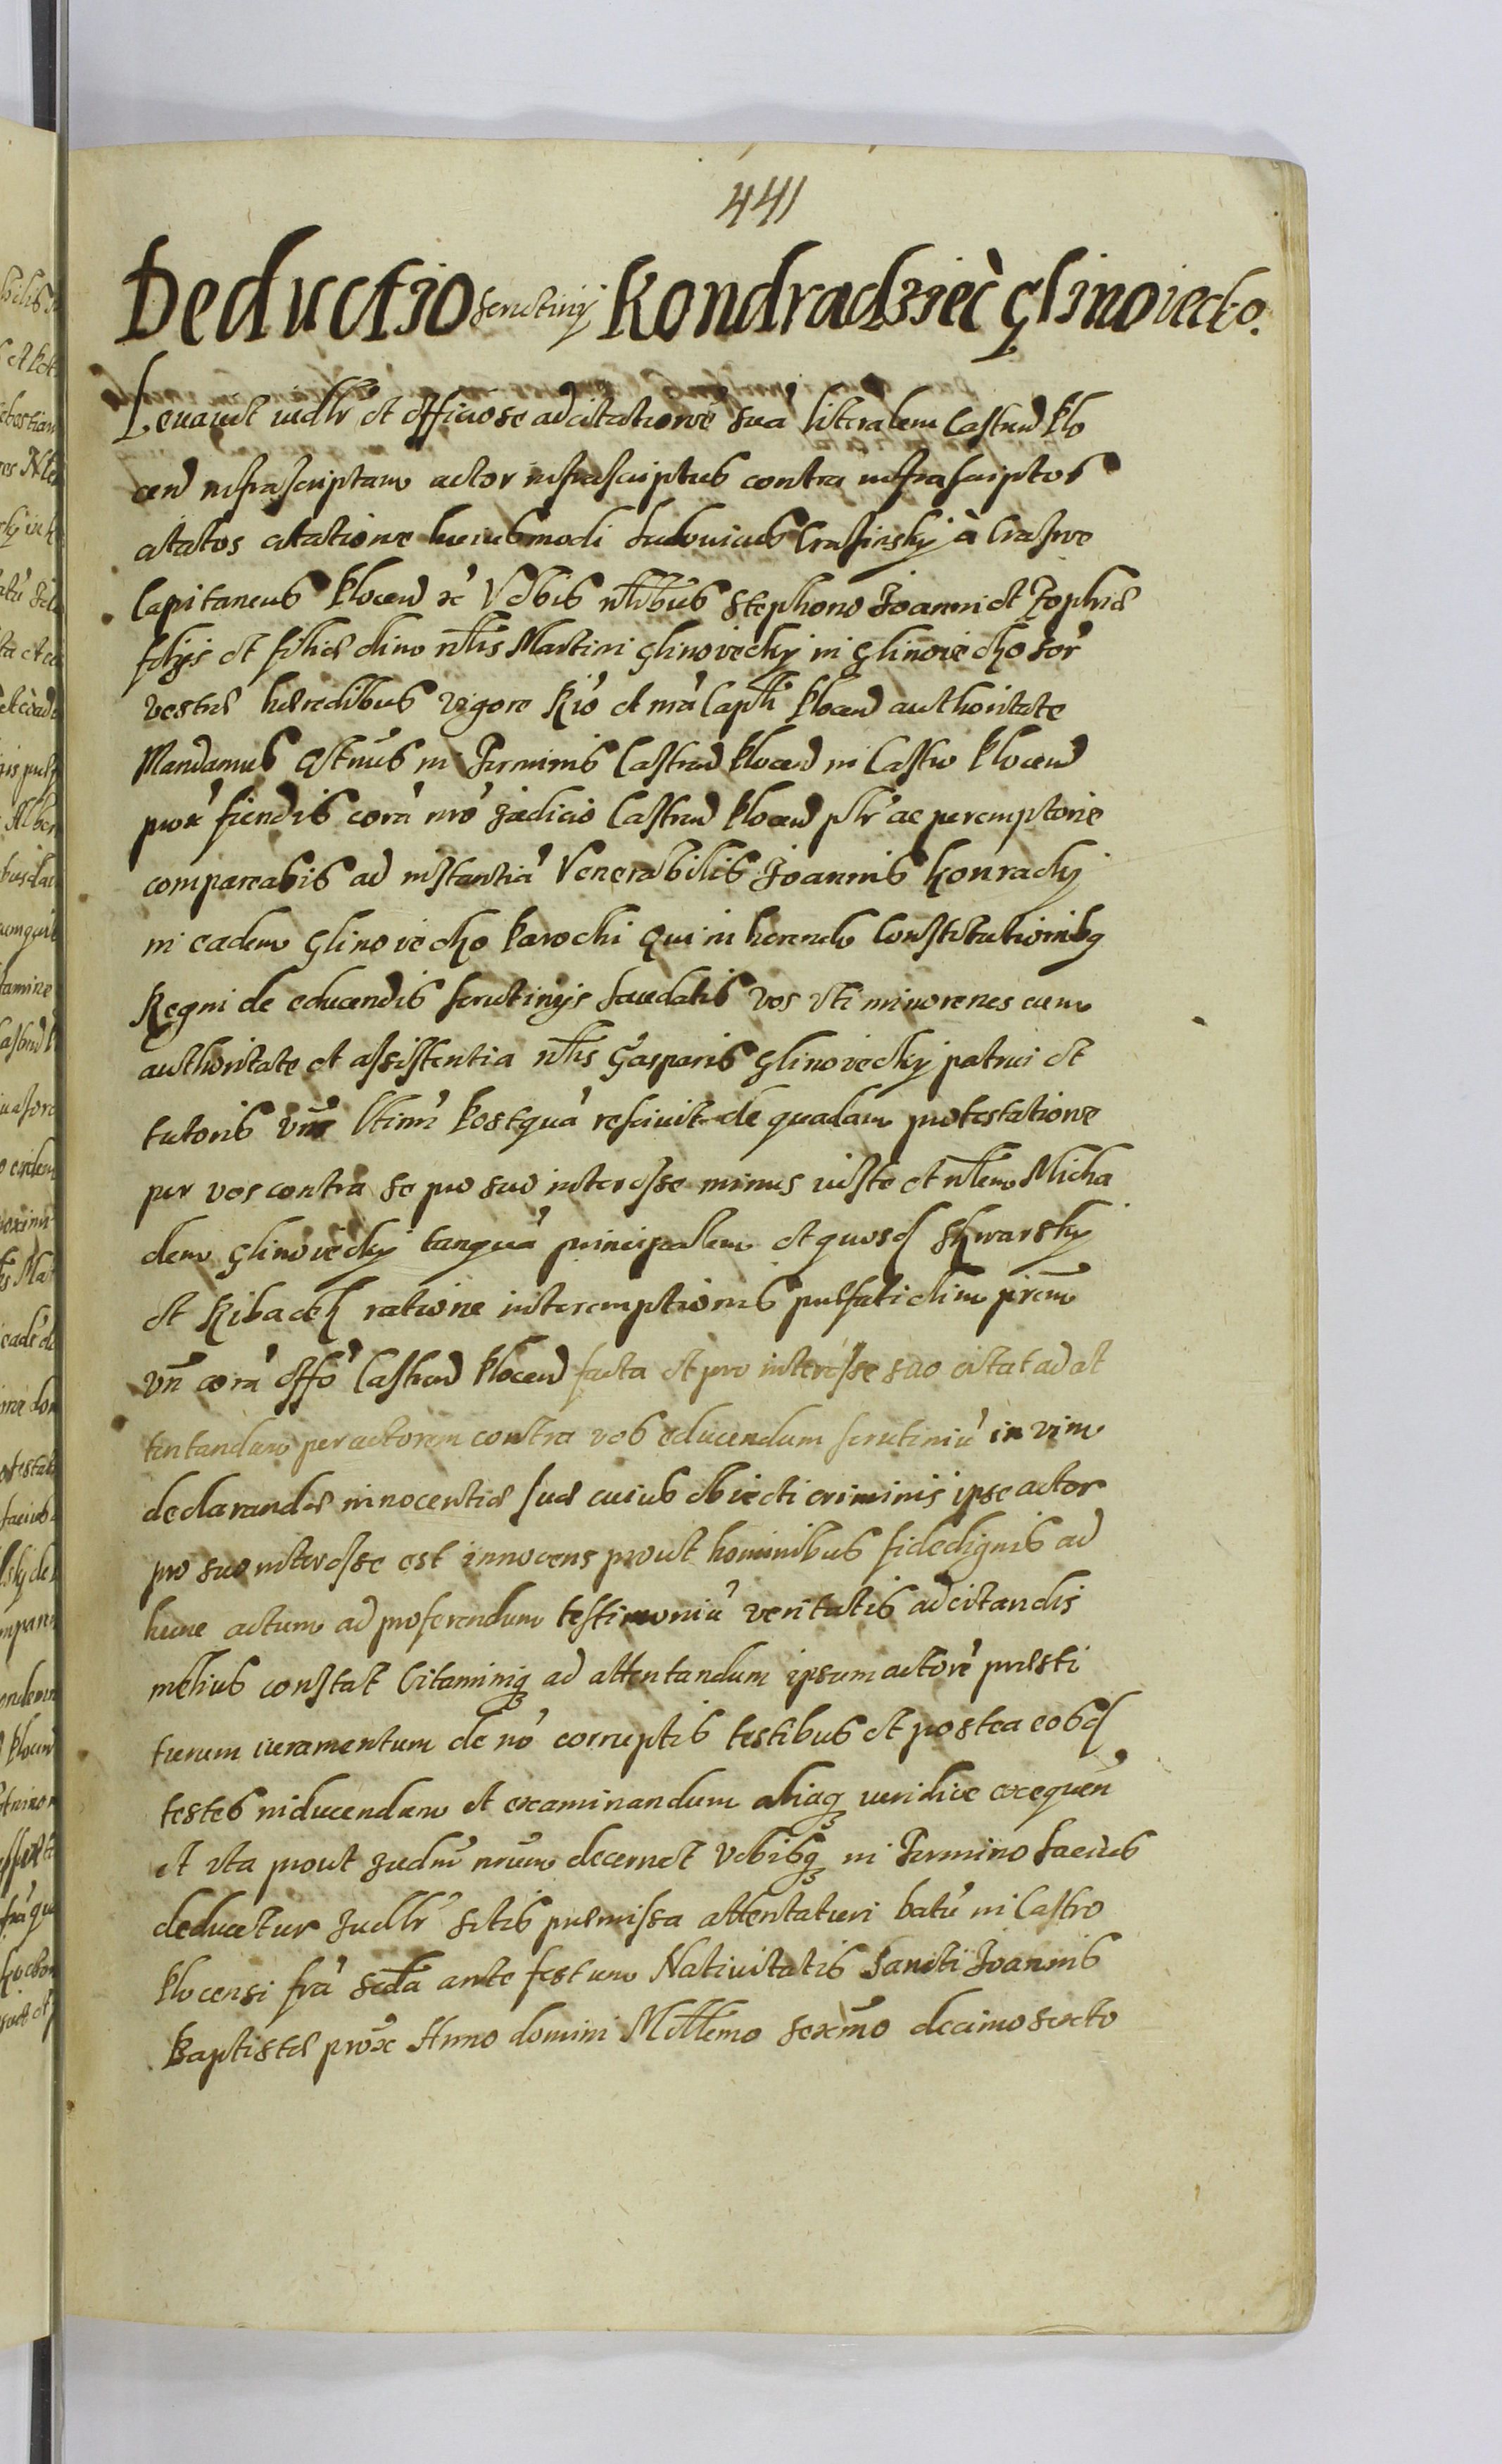 441
Deductio scrutinÿ Kondradzieć Glinoiecko.
Levavit iudlr et officiose ad citationē suā literalem Castren Plo
cen infrascriptam actor infrascriptus contra infrascriptos
citatos citatione huiusmodi Ludovicus Crasinsky à Crasne
Capitaneus Plocen &c Vobis nlibus Stephano Joanni et Zophiæ
filijs et filiæ olim nlis Martini Glinoiecky in Glinoiecko
vestræ hæredibus vigore Rió et nrā Capli Plocen authoritate
Mandamus in Terminis Castren Plocen in Castro Plocen
prox fiendis corā nro Judicio Castren Plocen plr ac peremptorie
compareatis ad instantiā Venerabilis Joannis Konracky
in eadem Glinoiecko Parochi Qui in herendo Constitutionibq
Regni de educendis scrutinijs laudatis vos uti minorenes cum
authoritate et assistentia nlis Gasparis Glinoiecky patrui et
tutoris vrē ltimi Postquā rescivit de quadam protestatione
per vos contra se pro suo interesse minus iuste et nlem Micha
elem Glinoiecky tanquā principalem et quosd Skwarsky
et Ribacek ratione interemptionis pulsati olim
vri corā offo Castren Plocen facta et pro interesse suo citat ad at
tentandum per actorem contra vos educendum scrutiniū in vim
declarandæ innocentiæ suæ cuius obiecti criminis ipse actor
pro suo interesse est innocens prout hominibus fidedignis ad
hunc actum ad proferendum testimoniū veritatis ad citandis
melius constat Citaminiq ad attentandum ipsum actorē præsti
turum iuramentum de nō corruptis testibus et postea eosd
testes inducendum et examinandum aliaq iuridice exequen
et ita prout Judm nrum decernet Vobisq in Termino
deducetur Judlr sitis præmissa attentaturi Datū in Castro
Plocensi frā scda ante festum Nativitatis Sancti Joannis
Baptistæ prox Anno domini Millemo sexmo decimo sexto